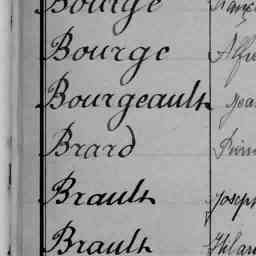 Bourge
Bourge Alfre
Bourgeault Jea
Brard Pierr
Brault Joseph
Brault Hilar